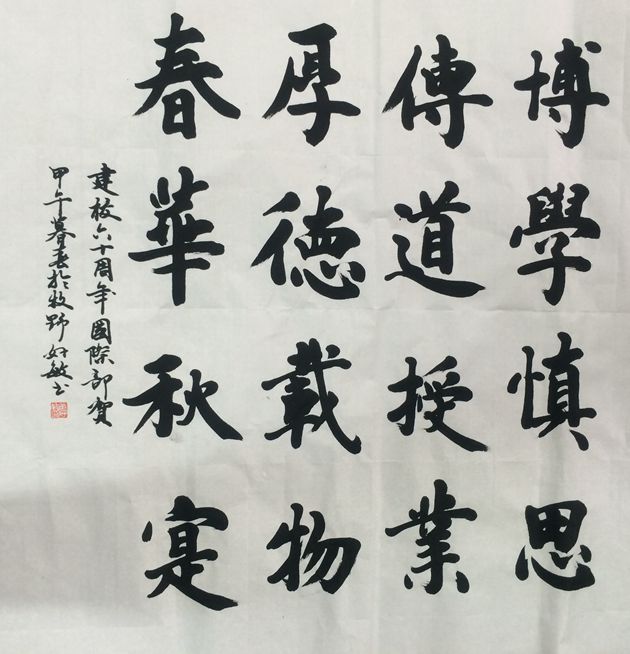 博學慎思
傳道授業
厚德載物
春華秋寔
建校六十周年國際部賀
甲午暮春於牧野好敏书